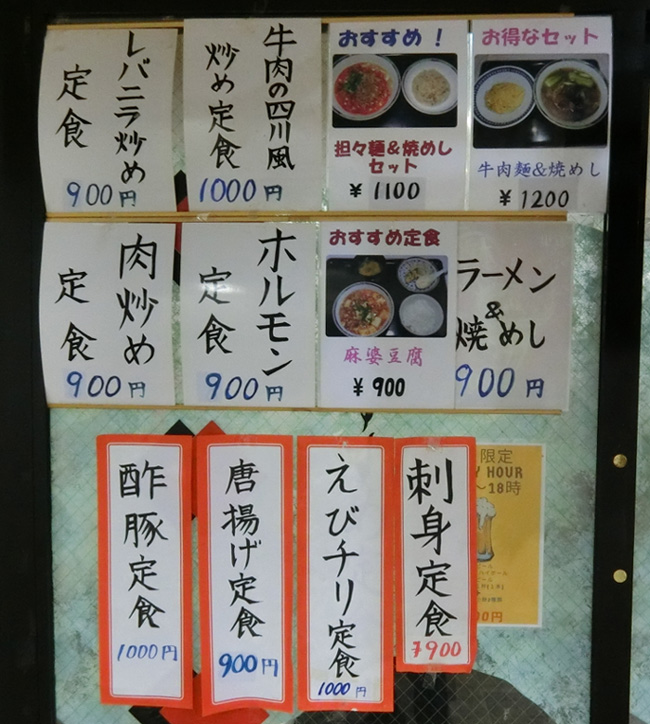 レバニラ炒め
定食
900円
牛肉の四川風
炒め定食
1000円
おすすめ！
担々麺&焼めし
セット
¥ 1100
お得なセット
牛肉麺&焼めし
¥ 1200
肉炒め
定食
900円
ホルモン
定食
900円
おすすめ定食
麻婆豆腐
¥ 900
ラーメン
&
焼めし
900円
酢豚定食
1000円
唐揚げ定食
900円
えびチリ定食
1000円
刺身定食
¥900
限定
HOUR
~18時